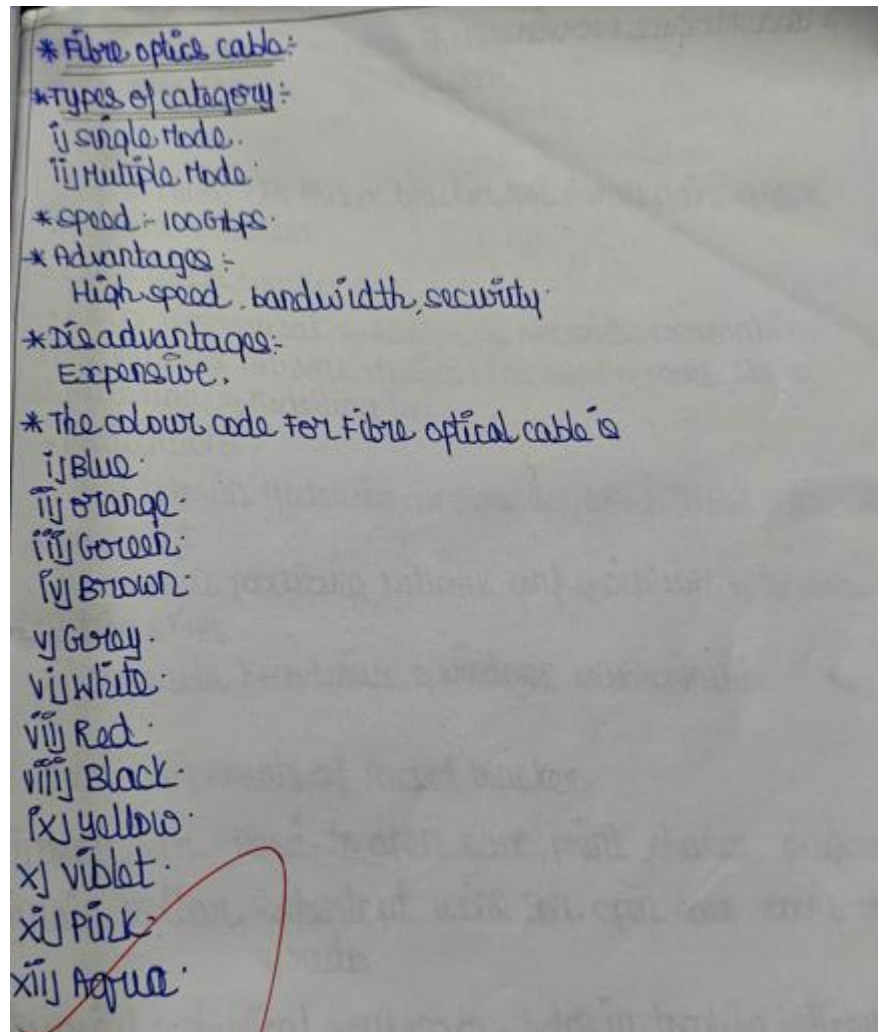 * Fibre optics cable:-
* Types of category:-
i) single Mode.
ii) Multiple Mode.
* speed:- 100Gbps.
* Advantages:-
High speed, bandwidth, security.
* Disadvantages:-
Expensive.
* The colour code For Fibre optical cable is
i) Blue.
ii) orange.
iii) Green.
iv) Brown.
v) Gray.
vi) White.
vii) Red.
viii) Black.
ix) yellow.
x) violet.
xi) Pink.
xii) Aqua.